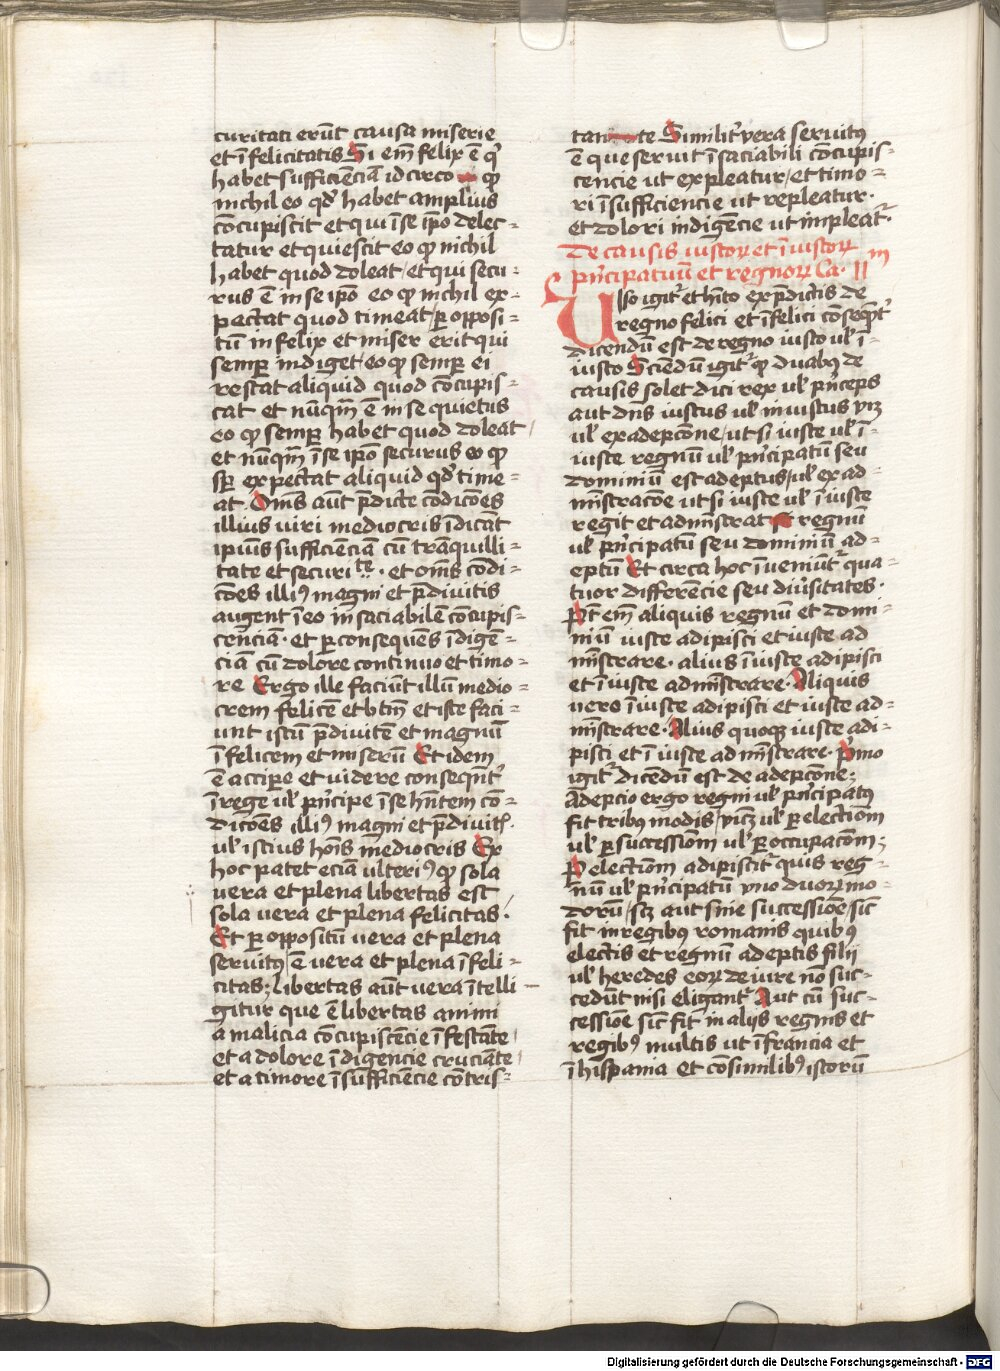 curitati erūt causa miserie
et īfelicitatis Si em̄ felix ē qͥ
habet sufficiēciā idcirco qꝫ
nichil eo qd̕ habet amplius
cōcupiscit et qui īse ip̄o delec-
tatur et quiescit eo qꝫ nichil
habet quod doleat / et qui secu-
rus ē in se ip̄o eo qꝫ nichil ex-
pectat quod timeat / ꝑ opposi-
tū infelix et miser erit qui
semꝑ indiget / eo qꝫ semꝑ ei
restat aliquid quod cōcupis-
cat et nūqm̄ ē in se quietus
eo qꝫ semꝑ habet quod doleat /
et nūqm̄ īse ip̄o securus eo qꝫ
sꝑ expectat aliquid qd̕ time-
at. Om̄s aūt p̄dicte cōdicōes
illius viri mediocris īdicāt
ipius sufficiēciā cū trāquilli-
tate et securite. et om̄s cōdi-
cōes illiꝰ magni et p̄divitis
augent ī eo insaciabilē cōcupis-
cēciā. et ꝑ consequēs īdigē-
ciā cū dolore continuo et timo-
re Ergo ille faciūt illū medio-
crem felicē et btm̄ et iste faci-
unt istū p̄divitē et magnū
īfelicem et miserū Et idem
ē accipe et videre consequnt᷑
ī rege ul̕ pͥncipe ī se hn̄tem cō-
dicōes illiꝰ magni et p̄divit̕.
ul̕ istius hoīs mediocris Ex
hoc patet eciā ulteriꝰ qꝫ sola
vera et plena libertas est
sola vera et plena felicitas.
Et ꝑ oppositū vera et plena
servitꝰ ē vera et plena īfeli-
citas; libertas aūt vera ītelli-
gitur que ē libertas animi
a malicia cōcupiscēcie īfestāte /
et a dolore īdigencie cruciāte /
et a timore īsufficiēcie cōtris-
tante Similit᷑ vera servitꝰ
ē que servit īsaciabili cōcupis-
cencie ut expleatur / et timo-
ri īsufficiencie ut repleatur.
et dolori indigēcie ut impleat᷑.
De causis iustoꝝ et īiustoꝝ
pͥncipatuū et regnoꝝ Ca. IIm
Uiso igit᷑ et hīto ex p̄dictis de
regno felici et īfelici cōseqͣt᷑
dicendū est de regno iusto ul̕ ī-
iusto Sciendū igit᷑ qꝫ duabꝰ de
causis solet dici rex ul̕ pͥnceps
aut dn̄s iustus ul̕ iniustus vꝫ
ul̕ ex adepcōne, ut si iuste ul̕ ī-
iuste regnū ul̕ pͥncipatū seu
dominiū est adeptus, ul̕ ex ad-
mīstracōe ut si iuste ul̕ īiuste
regit et admīstrat regnū
ul̕ pͥncipatū seu dominiū ad-
eptū Et circa hoc īveniūt᷑ qua-
tuor differēcie seu diūsitates.
Pt̄ em̄ aliquis regnū et domi-
niū iuste adipisci et iuste ad
mīstrare. alius īiuste adipisci
et īiuste admīstrare. Aliquis
vero īiuste adipisci et iuste ad-
mīstrare. Alius quoqꝫ iuste adi-
pisci et īiuste admīstrare. Pͥmo
igit᷑ dicendū est de adepcōne;
Adepcio ergo regni ul̕ pͥncipatꝰ
fit tribꝰ modis, vicꝫ ul̕ ꝑ electiōm
ul̕ ꝑ successiōm ul̕ ꝑ occupacōm;
Per electiōm adipiscit᷑ quis reg-
nū ul̕ pͥncipatū vno duoꝝ mo-
dorū / scꝫ aut sine successiōe / sic̄
fit in regibꝰ romanis quibꝰ
electis et regnū adeptis filij
ul̕ heredes eoꝝ de iure nō suc-
cedūt nisi eligant᷑ Aut cū suc-
cessiōe sic̄ fit in alijs regnis et
regibꝰ multis ut ī francia et
ī hispania et cōsimilibꝰ istorū
Digitalisierung gefördert durch die Deutsche Forschungsgemeinschaft - DFG